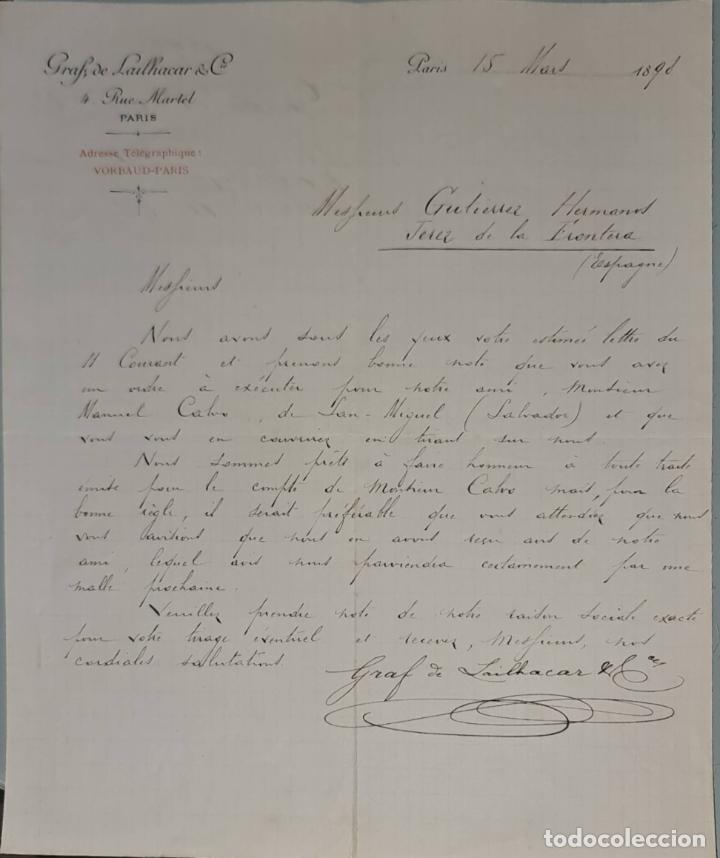 Graf, de Lailhacar & Cie
4 Rue Martel
PARIS
Adresse Télégraphique:
VORBAUD-PARIS
Paris 15 Mars 1898
Messieurs Gutierrez Hermanos
Jerez de la Frontera
(Espagne)
Messieurs
Nous avons sous les yeux votre estimée lettre du
11 Courant et prenons bonne note que vous avez
un ordre à exécuter pour notre ami, Monsieur
Manuel Calvo, de San-Miguel (Salvador) et que
vous vous en couvrirez en tirant sur nous.
Nous sommes prêts à faire honneur à toute traite
émise pour le compte de Monsieur Calvo mais, pour la
bonne règle, il serait préférable que vous attendiez que nous
vous avisions que nous en avons reçu avis de notre
ami, lequel avis nous parviendra certainement par une
malle prochaine.
Veuillez prendre note de notre raison sociale exacte
pour votre tirage eventuel et recevez, Messieurs, nos
cordiales salutations.
Graf de Lailhacar & Cie
todocoleccion